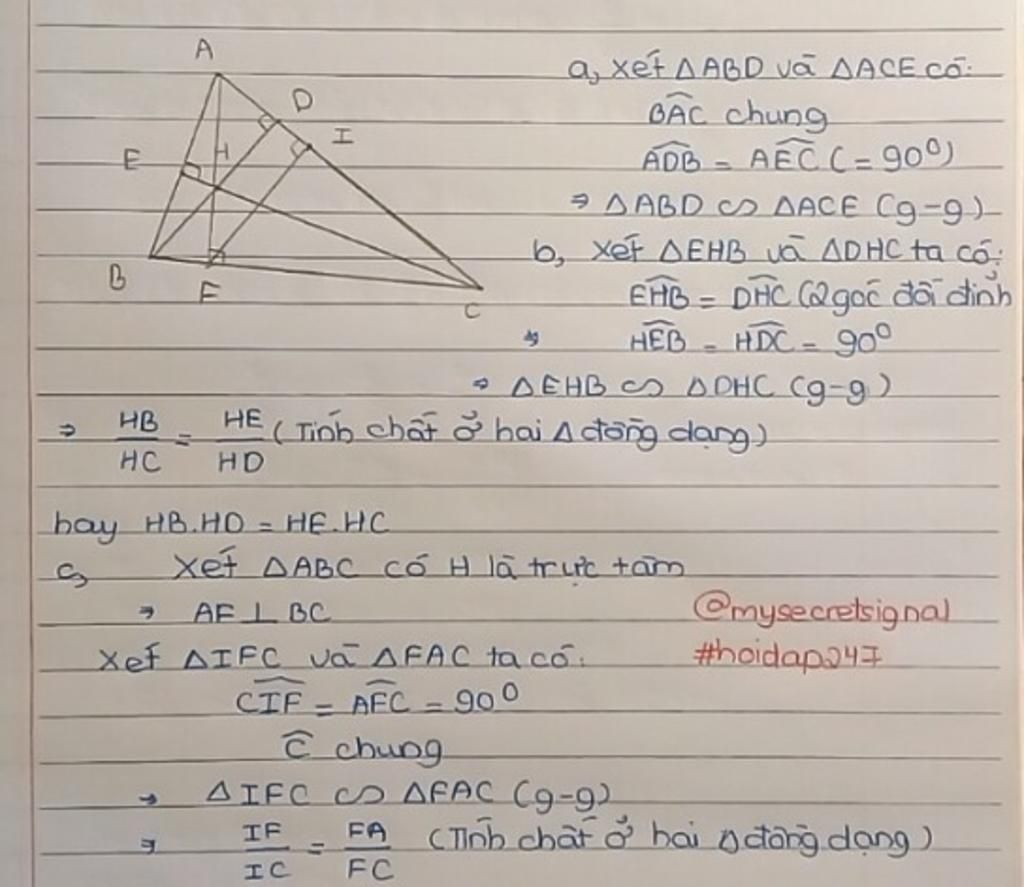 A
D
I
E
H
B
F
C
a, xét ΔABD và ΔACE có:
BAC chung
ADB = AEC (= 90⁰)
⇒ ΔABD ∽ ΔACE (g-g)
b, xét ΔEHB và ΔDHC ta có:
EHB = DHC (2 góc đối đỉnh
⇒ HEB = HDC = 90⁰
⇒ ΔEHB ∽ ΔDHC (g-g)
⇒ HB/HC = HE/HD (Tính chất ở hai Δ đồng dạng)
hay HB.HD = HE.HC
c, Xét ΔABC có H là trực tâm
⇒ AF ⊥ BC
Xét ΔIFC và ΔFAC ta có:
CIF = AFC = 90⁰
C chung
⇒ ΔIFC ∽ ΔFAC (g-g)
⇒ IF/IC = FA/FC (Tính chất ở hai Δ đồng dạng)
@mysecretsignal
#hoidap247